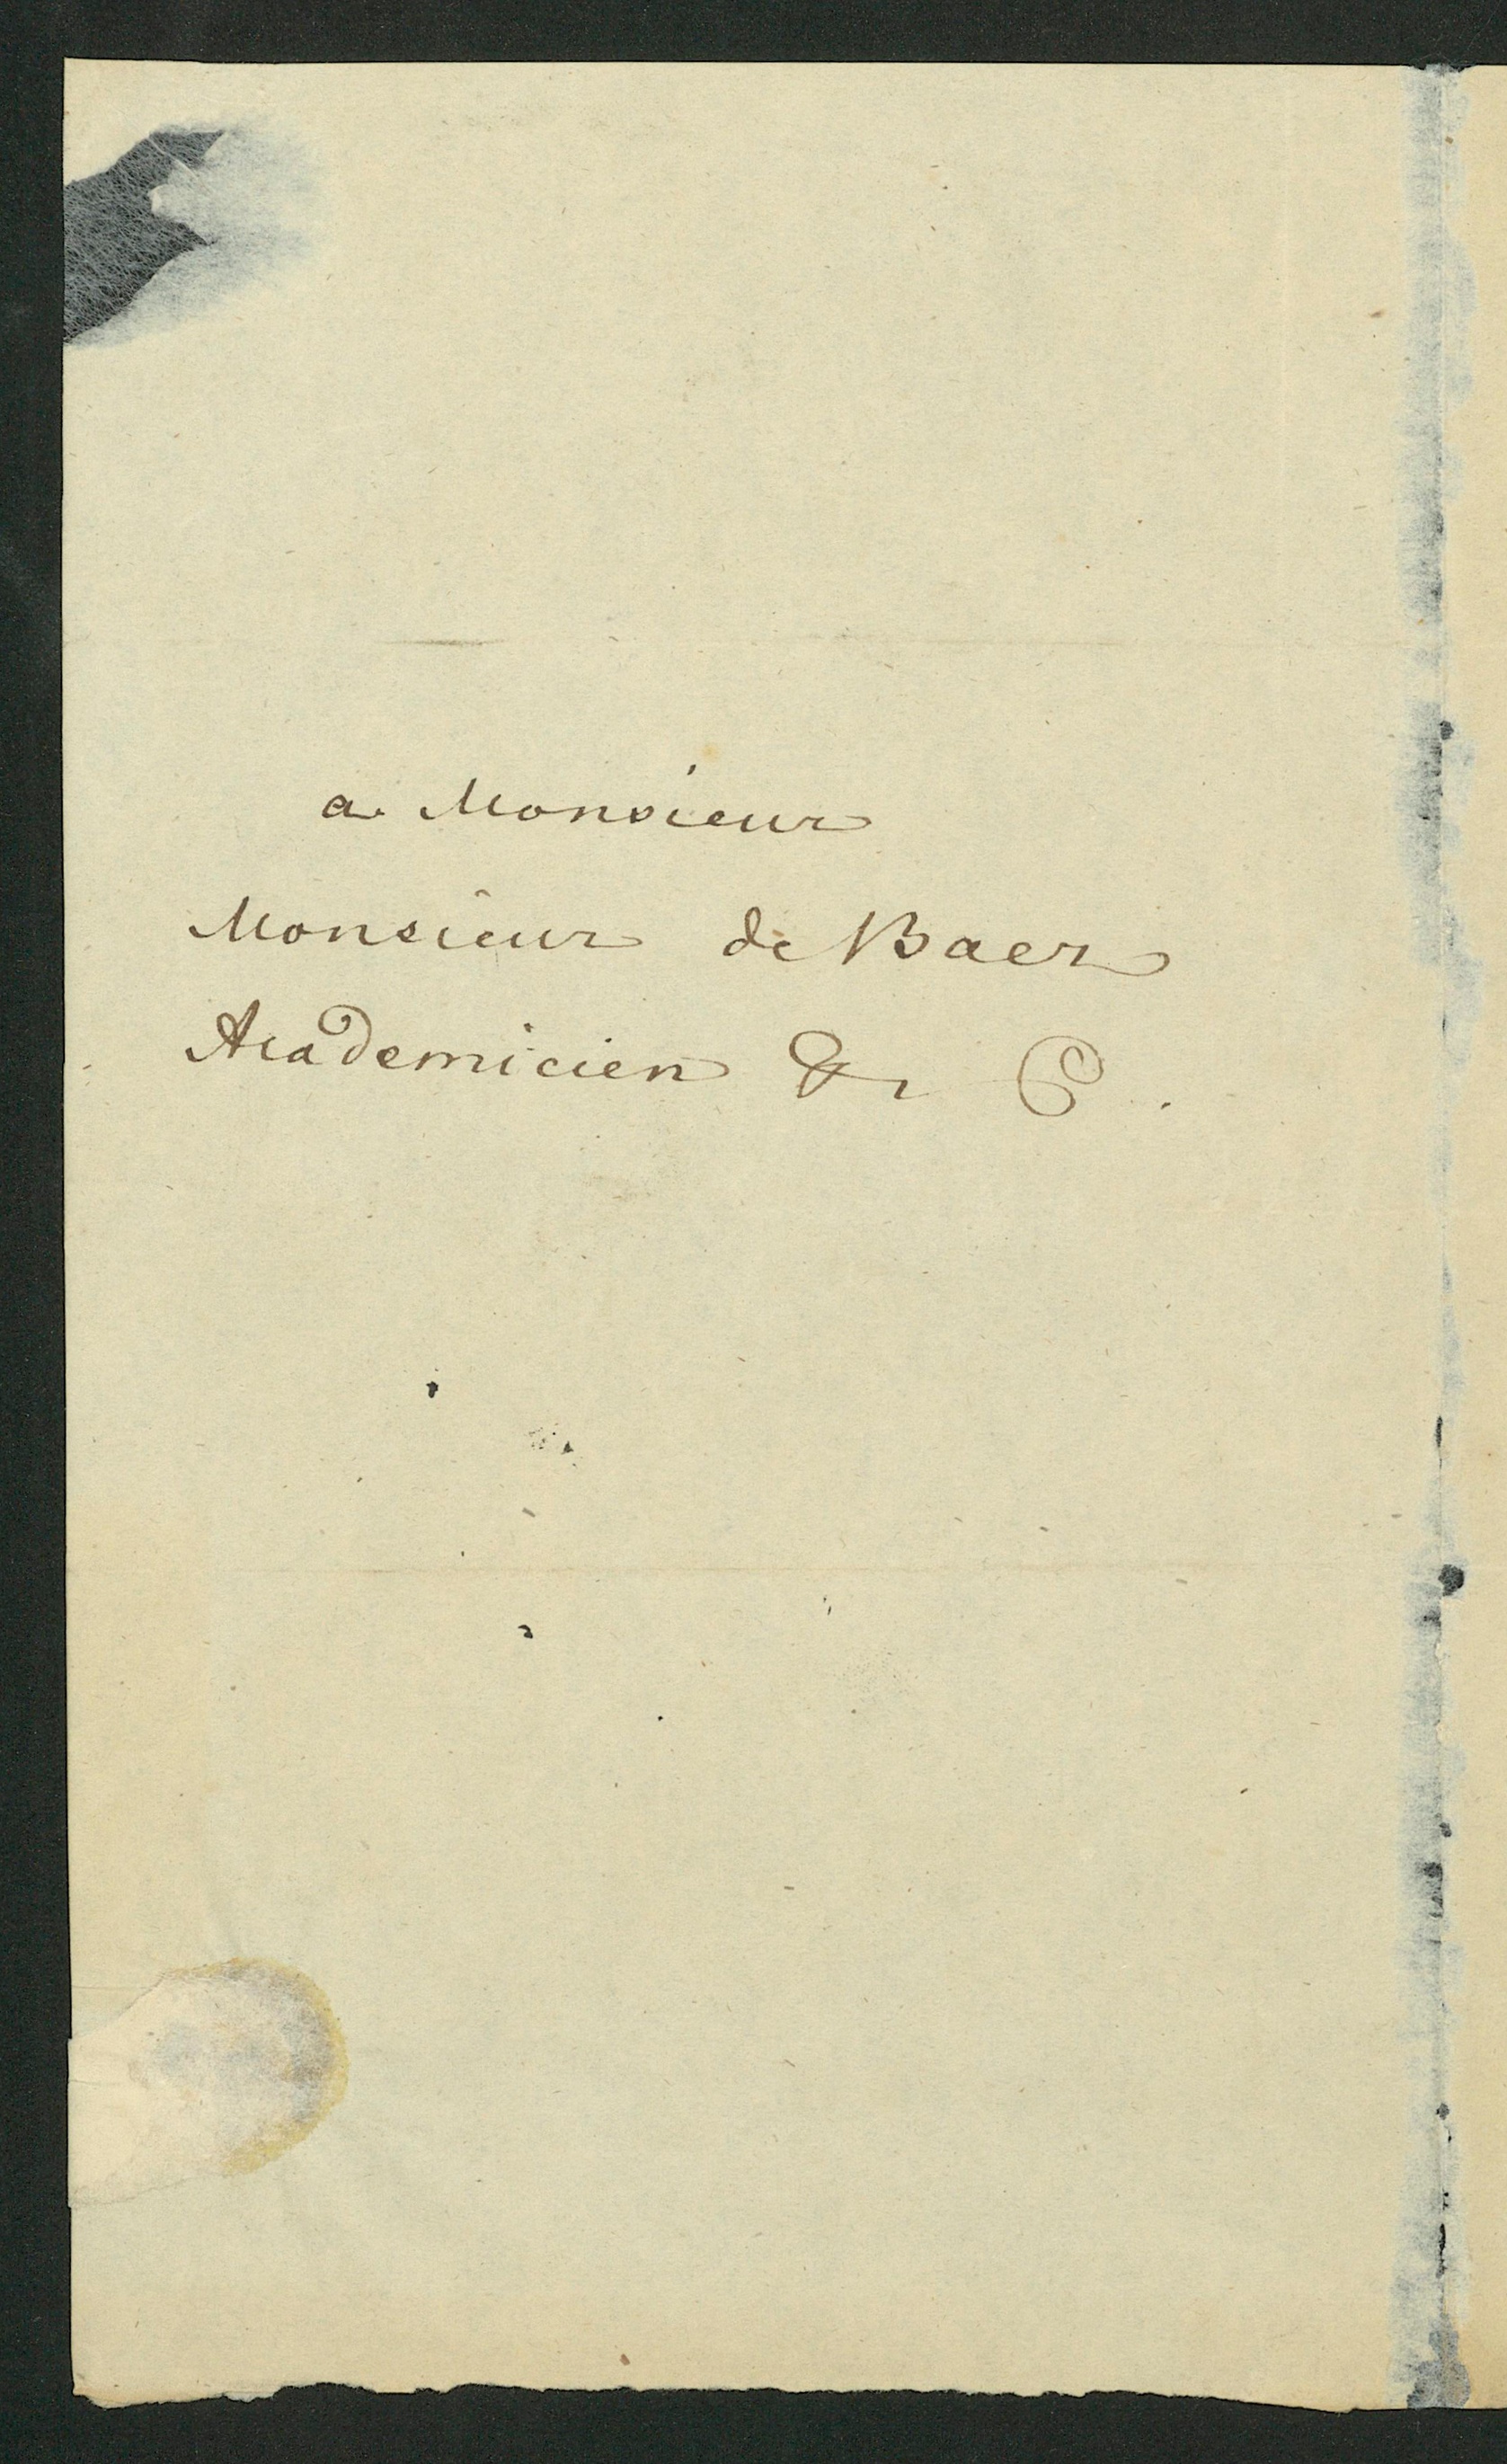 a Monsieur
Monsieur de Baer
Academicien & C.